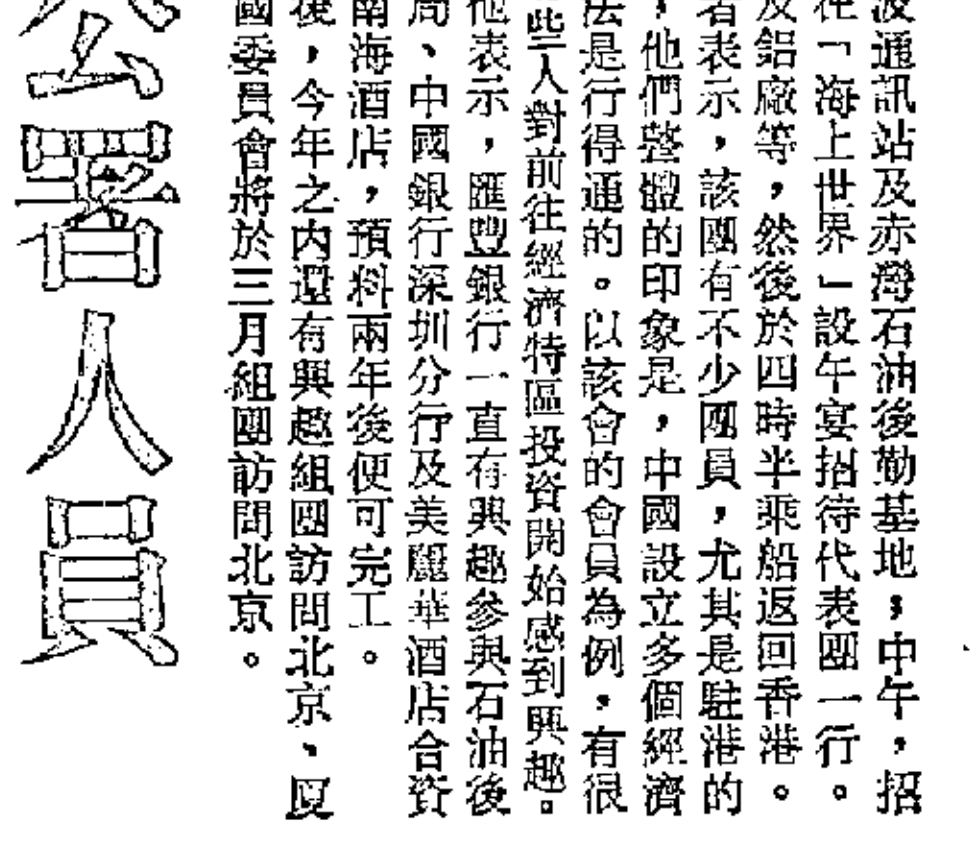 波通訊站及赤灣石油後勤基地；中午，招
在「海上世界」設午宴招待代表團一行。
及鋁廠等，然後於四時半乘船返回香港。
者表示，該團有不少團員，尤其是駐港的
，他們整體的印象是，中國設立多個經濟
法是行得通的。以該會的會員為例，有很
些人對前往經濟特區投資開始感到興趣。
他表示，匯豐銀行一直有興趣參與石油後
局、中國銀行深圳分行及美麗華酒店合資
南海酒店，預料兩年後便可完工。
後，今年之內還有興趣組團訪問北京、廈
國委員會將於三月組團訪問北京。
公署人員